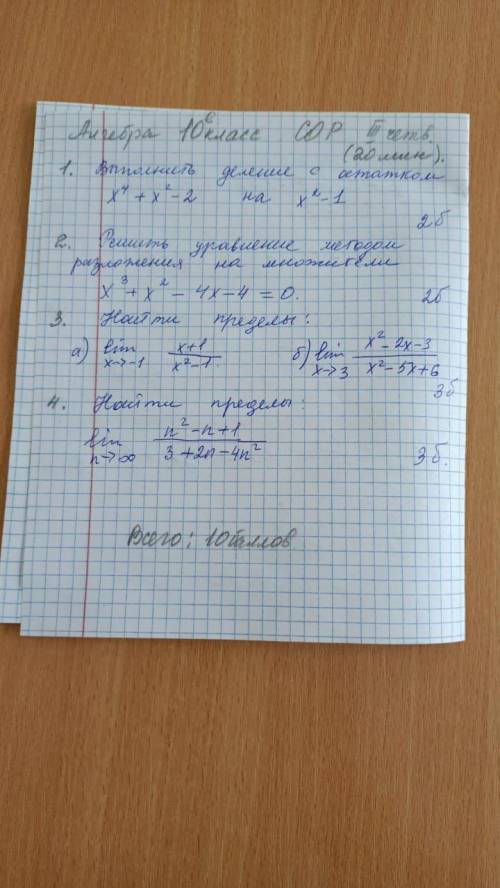 Алгебра 10 класс СОР III четв.
(20 мин).
1. Выполнить деление с остатком
x⁴ + x² - 2 на x² - 1
2б
2. Решить уравнение методом
разложения на множители
x³ + x² - 4x - 4 = 0. 2б
3. Найти пределы:
а) lim x→-1 (x+1)/(x²-1) б) lim x→3 (x²-2x-3)/(x²-5x+6)
3б
4. Найти пределы:
lim n→∞ (n²-n+1)/(3+2n-4n²) 3б.
Всего: 10 баллов